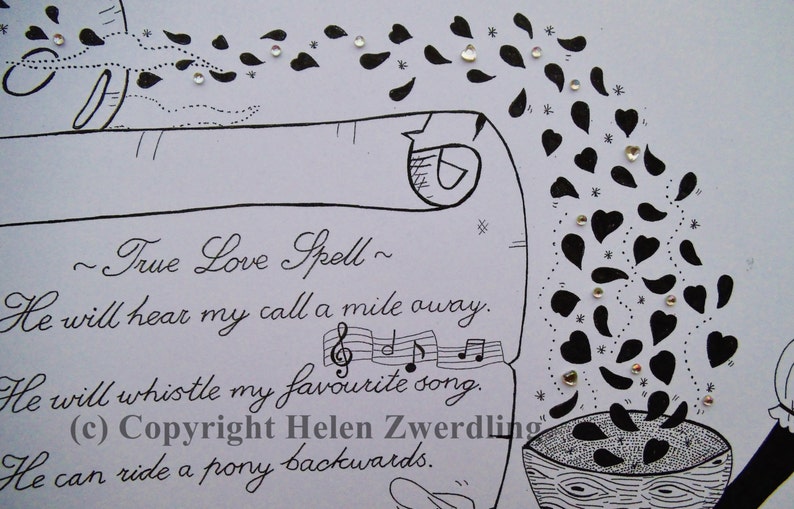 ~ True Love Spell ~
He will hear my call a mile away.
He will whistle my favourite song.
(c) Copyright Helen Zwerdling
He can ride a pony backwards.